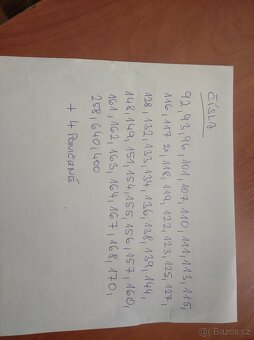 ČÍSLA
92, 93, 96, 101, 107, 110, 111, 113, 115,
116, 117 2x, 118, 119, 122, 123, 125, 127,
128, 132, 133, 134, 136, 138, 139, 144,
148, 149, 151, 154, 155, 156, 157, 160,
161, 162, 163, 164, 167, 168, 170,
258, 640, 400
+ 4 PONIČENÉ
Bazos.cz